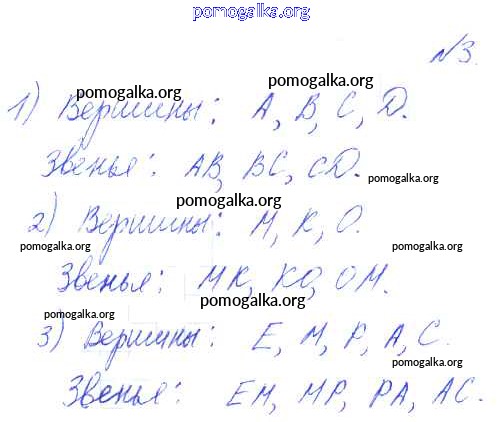 pomogalka.org
№3.
pomogalka.org pomogalka.org
1) Вершины: A, B, C, D.
Звенья: AB, BC, CD.
pomogalka.org pomogalka.org
2) Вершины: M, K, O.
pomogalka.org pomogalka.org
Звенья: MK, KO, OM.
pomogalka.org pomogalka.org
3) Вершины: E, M, P, A, C.
pomogalka.org pomogalka.org
Звенья: EM, MP, PA, AC.